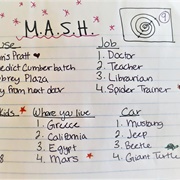 M.A.S.H.
use
's Pratt
edict Cumberbatch
brey Plaza
y from next door
Job
1. Doctor
2. Teacher
3. Librarian
4. Spider Trainer
Kids
8
Where you live
1. Greece
2. California
3. Egypt
4. Mars
Car
1. Mustang
2. Jeep
3. Beetle
4. Giant Turtle